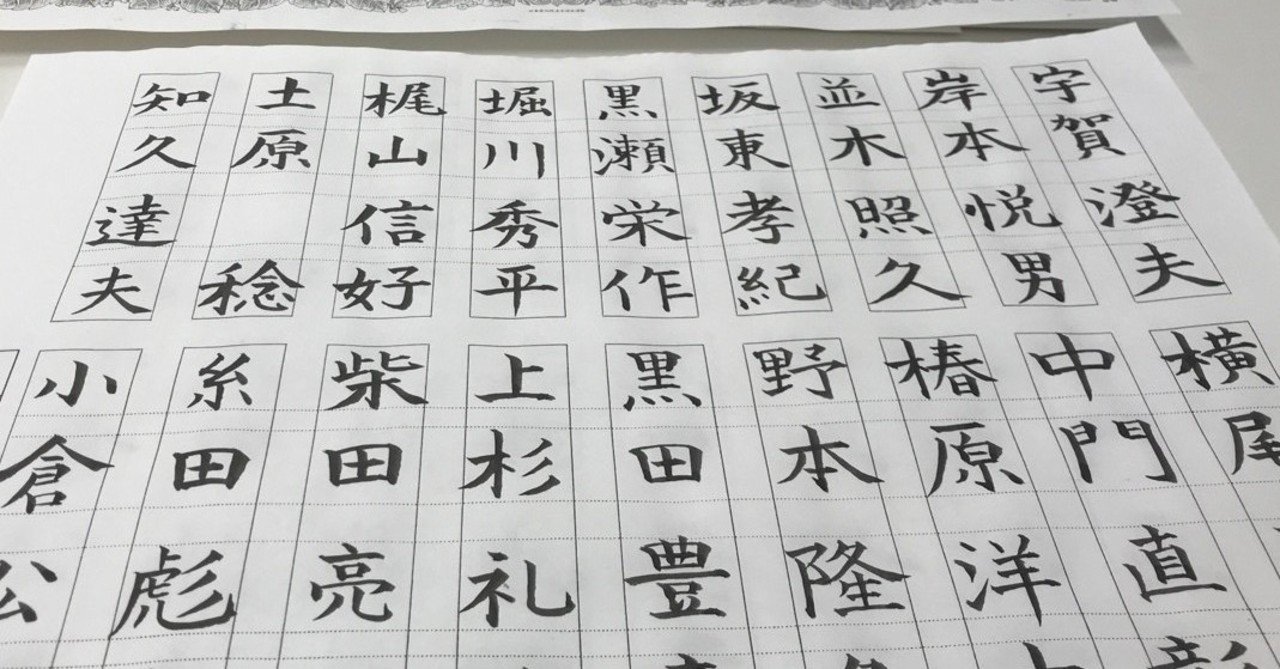 宇賀澄夫
岸本悦男
並木照久
坂東孝紀
黒瀬栄作
堀川秀平
梶山信好
土原稔
知久達夫
横尾
中門直
椿原洋
野本隆
黒田豊
上杉礼
柴田亮
糸田彪
小倉公